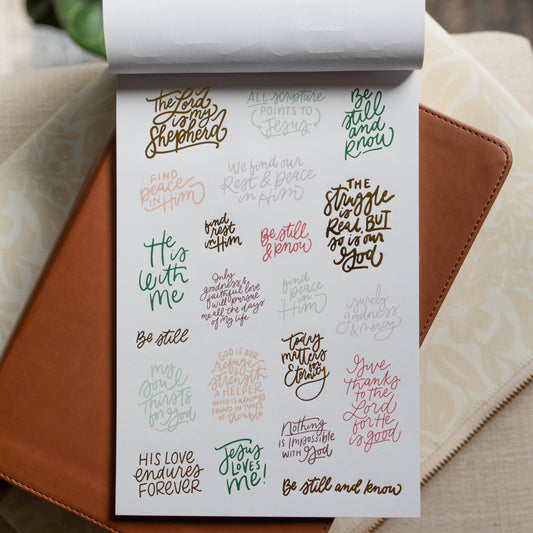 The Lord
is my
Shepherd
ALL SCRIPTURE
POINTS TO
Jesus
Be
still
and
know
FIND
peace
IN Him
We find our
Rest & Peace
in Him
THE
Struggle
is
Real, BUT
so is our
God
find
rest
in Him
Be still
& know
He
is
with
me
Only
goodness &
faithful love
will pursue
me all the days
of My life
find
peace
in
Him
surely
goodness
& mercy
Be still
my
soul
thirsts
for God
GOD IS OUR
refuge
strength
A HELPER
WHO IS always
FOUND IN TIMES
of trouble
Today
matters
for
Eternity
Give
thanks
to the
Lord
for He
is good
HIS LOVE
endures
FOREVER
Jesus
LOVES
me!
Nothing
IS IMPOSSIBLE
WITH God
Be still and know